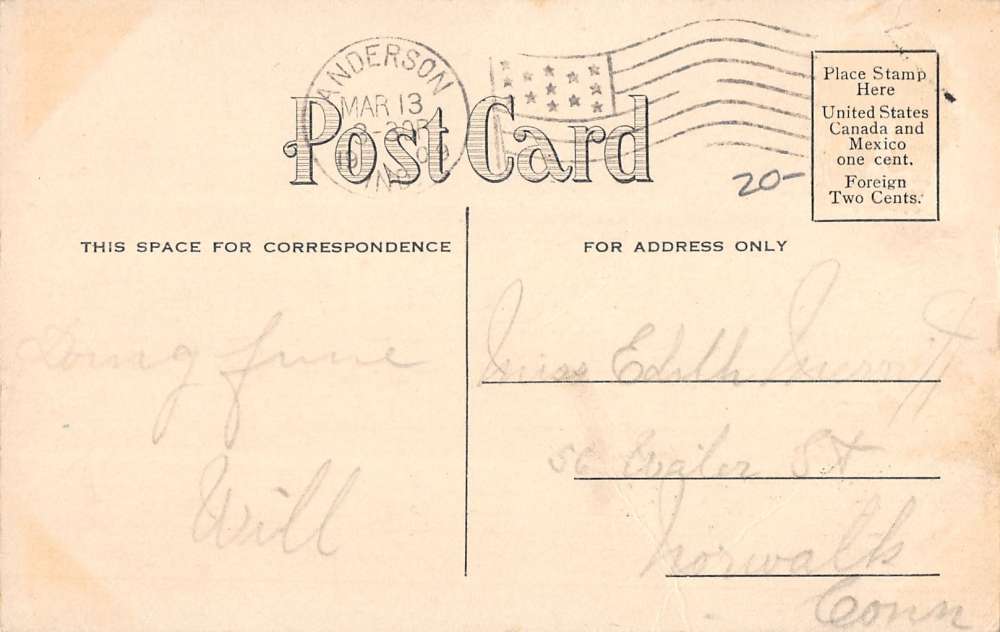 ANDERSON
MAR 13
IND
Post Card
20-
Place Stamp
Here
United States
Canada and
Mexico
one cent.
Foreign
Two Cents.
THIS SPACE FOR CORRESPONDENCE
FOR ADDRESS ONLY
Doing fine
Will
Miss Edith
St
Norwalk
Conn